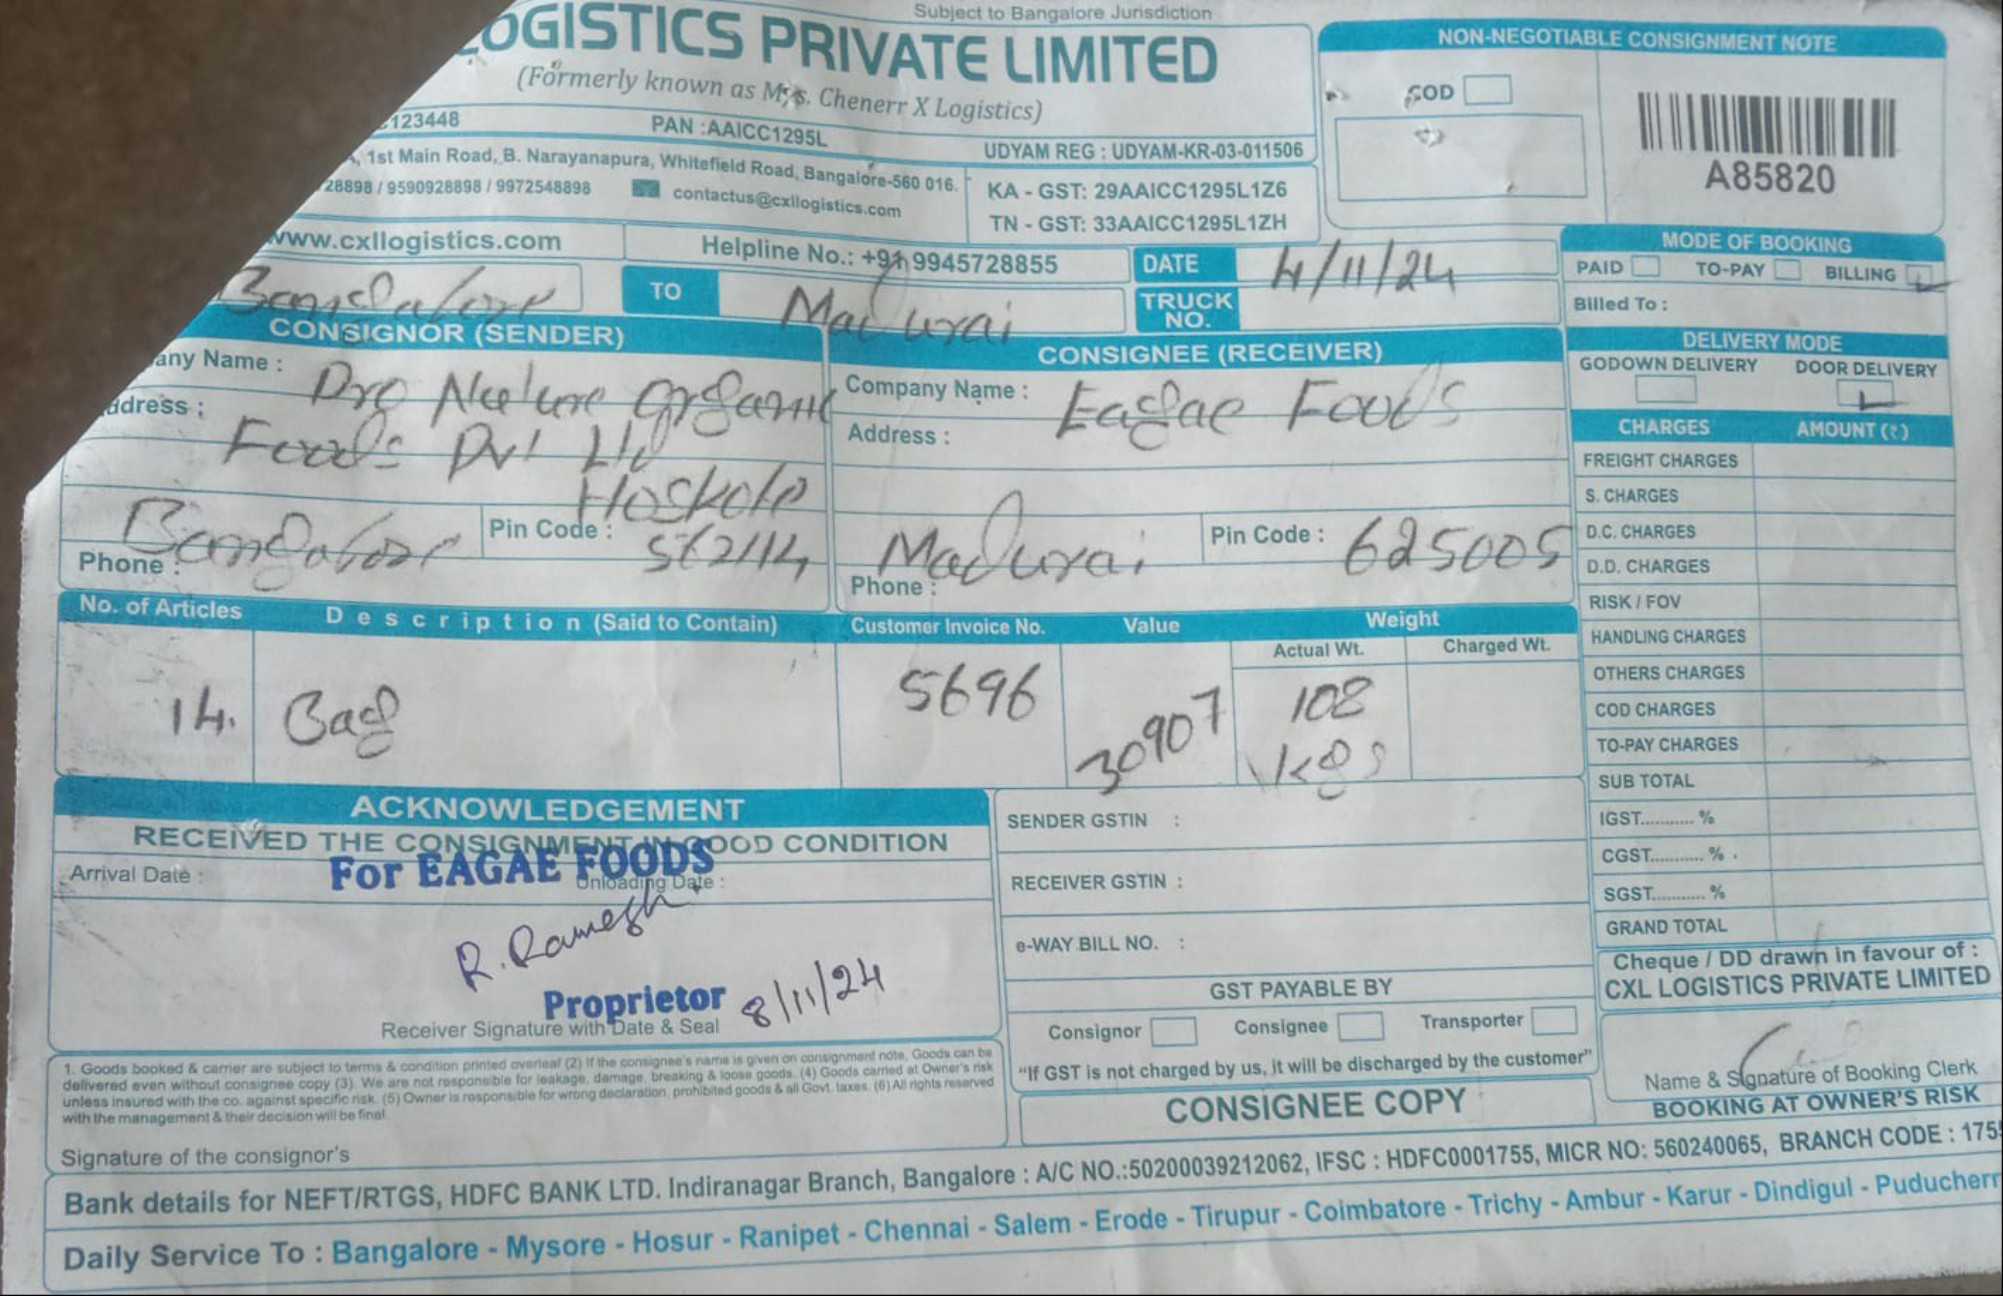 Subject to Bangalore Jurisdiction
OGISTICS PRIVATE LIMITED
(Formerly known as M/s. Chenerr X Logistics)
123448 PAN :AAICC1295L
UDYAM REG : UDYAM-KR-03-011506
1st Main Road, B. Narayanapura, Whitefield Road, Bangalore-560 016.
28898 / 9590928898 / 9972548898 contactus@cxllogistics.com
KA - GST: 29AAICC1295L1Z6
TN - GST: 33AAICC1295L1ZH
www.cxllogistics.com Helpline No.: +91 9945728855
NON-NEGOTIABLE CONSIGNMENT NOTE
COD
A85820
DATE 4/11/24
Bangalore TO Madurai
TRUCK NO.
MODE OF BOOKING
PAID TO-PAY BILLING
Billed To :
DELIVERY MODE
GODOWN DELIVERY DOOR DELIVERY
CONSIGNOR (SENDER)
any Name : Pro Nature Organic
address : Foods Pvt Ltd
Hoskote
Bangalore Pin Code : 562114
Phone :
CONSIGNEE (RECEIVER)
Company Name : Eagae Foods
Address :
Madurai Pin Code : 625005
Phone :
No. of Articles Description (Said to Contain) Customer Invoice No. Value Weight
Actual Wt. Charged Wt.
14. Bag 5696 30907 108
kgs
CHARGES AMOUNT (₹)
FREIGHT CHARGES
S. CHARGES
D.C. CHARGES
D.D. CHARGES
RISK / FOV
HANDLING CHARGES
OTHERS CHARGES
COD CHARGES
TO-PAY CHARGES
SUB TOTAL
IGST........... %
CGST........... %
SGST........... %
GRAND TOTAL
Cheque / DD drawn in favour of :
CXL LOGISTICS PRIVATE LIMITED
Name & Signature of Booking Clerk
BOOKING AT OWNER'S RISK
ACKNOWLEDGEMENT
RECEIVED THE CONSIGNMENT IN GOOD CONDITION
For EAGAE FOODS
Arrival Date : Unloading Date :
R. Ramesh
Proprietor 8/11/24
Receiver Signature with Date & Seal
SENDER GSTIN :
RECEIVER GSTIN :
e-WAY BILL NO. :
GST PAYABLE BY
Consignor Consignee Transporter
"If GST is not charged by us, it will be discharged by the customer"
CONSIGNEE COPY
1. Goods booked & carrier are subject to terms & condition printed overleaf (2) If the consignee's name is given on consignment note, Goods can be
delivered even without consignee copy (3). We are not responsible for leakage, damage, breaking & loose goods. (4) Goods carried at Owner's risk
unless insured with the co. against specific risk. (5) Owner is responsible for wrong declaration, prohibited goods & all Govt. taxes. (6) All rights reserved
with the management & their decision will be final.
Signature of the consignor's
Bank details for NEFT/RTGS, HDFC BANK LTD. Indiranagar Branch, Bangalore : A/C NO.:50200039212062, IFSC : HDFC0001755, MICR NO: 560240065, BRANCH CODE : 1755
Daily Service To : Bangalore - Mysore - Hosur - Ranipet - Chennai - Salem - Erode - Tirupur - Coimbatore - Trichy - Ambur - Karur - Dindigul - Puducherr